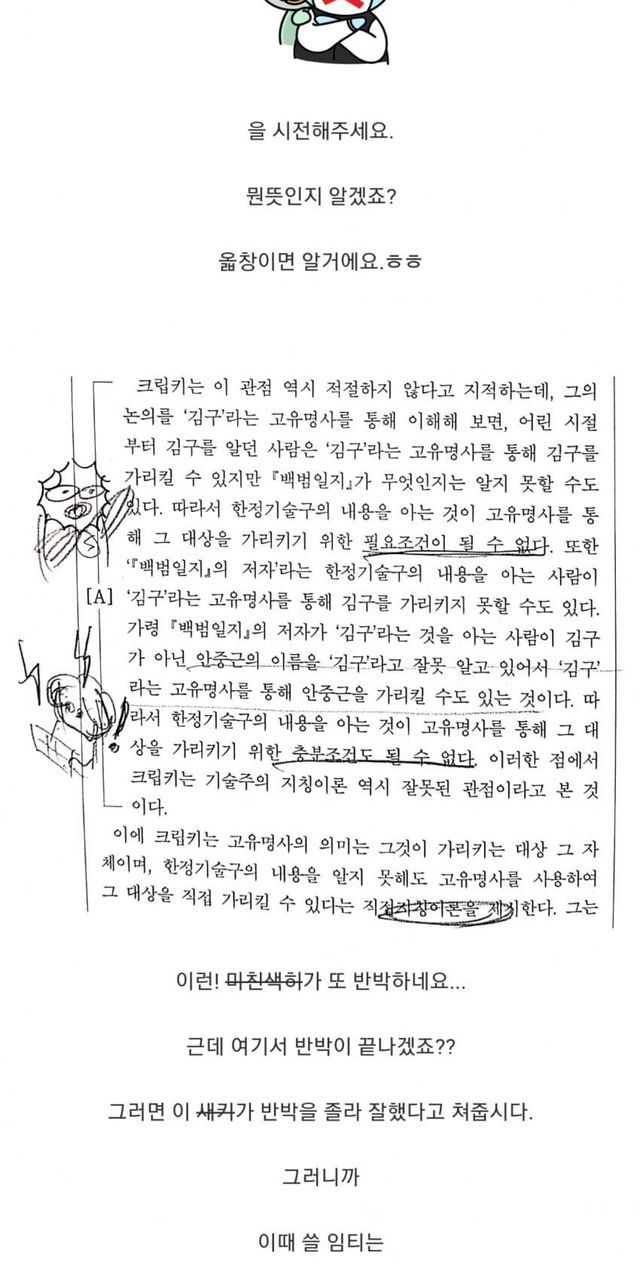 을 시전해주세요.
뭔뜻인지 알겠죠?
옯창이면 알거에요.ㅎㅎ
크립키는 이 관점 역시 적절하지 않다고 지적하는데, 그의
논의를 ‘김구’라는 고유명사를 통해 이해해 보면, 어린 시절
부터 김구를 알던 사람은 ‘김구’라는 고유명사를 통해 김구를
가리킬 수 있지만 『백범일지』가 무엇인지는 알지 못할 수도
있다. 따라서 한정기술구의 내용을 아는 것이 고유명사를 통
해 그 대상을 가리키기 위한 필요조건이 될 수 없다. 또한
‘『백범일지』의 저자’라는 한정기술구의 내용을 아는 사람이
[A] ‘김구’라는 고유명사를 통해 김구를 가리키지 못할 수도 있다.
가령 『백범일지』의 저자가 ‘김구’라는 것을 아는 사람이 김구
가 아닌 안중근의 이름을 ‘김구’라고 잘못 알고 있어서 ‘김구’
라는 고유명사를 통해 안중근을 가리킬 수도 있는 것이다. 따
라서 한정기술구의 내용을 아는 것이 고유명사를 통해 그 대
상을 가리키기 위한 충분조건도 될 수 없다. 이러한 점에서
크립키는 기술주의 지칭이론 역시 잘못된 관점이라고 본 것
이다.
이에 크립키는 고유명사의 의미는 그것이 가리키는 대상 그 자
체이며, 한정기술구의 내용을 알지 못해도 고유명사를 사용하여
그 대상을 직접 가리킬 수 있다는 직접지칭이론을 제시한다. 그는
이런! 미친색히가 또 반박하네요...
근데 여기서 반박이 끝나겠죠??
그러면 이 새키가 반박을 졸라 잘했다고 쳐줍시다.
그러니까
이때 쓸 임티는